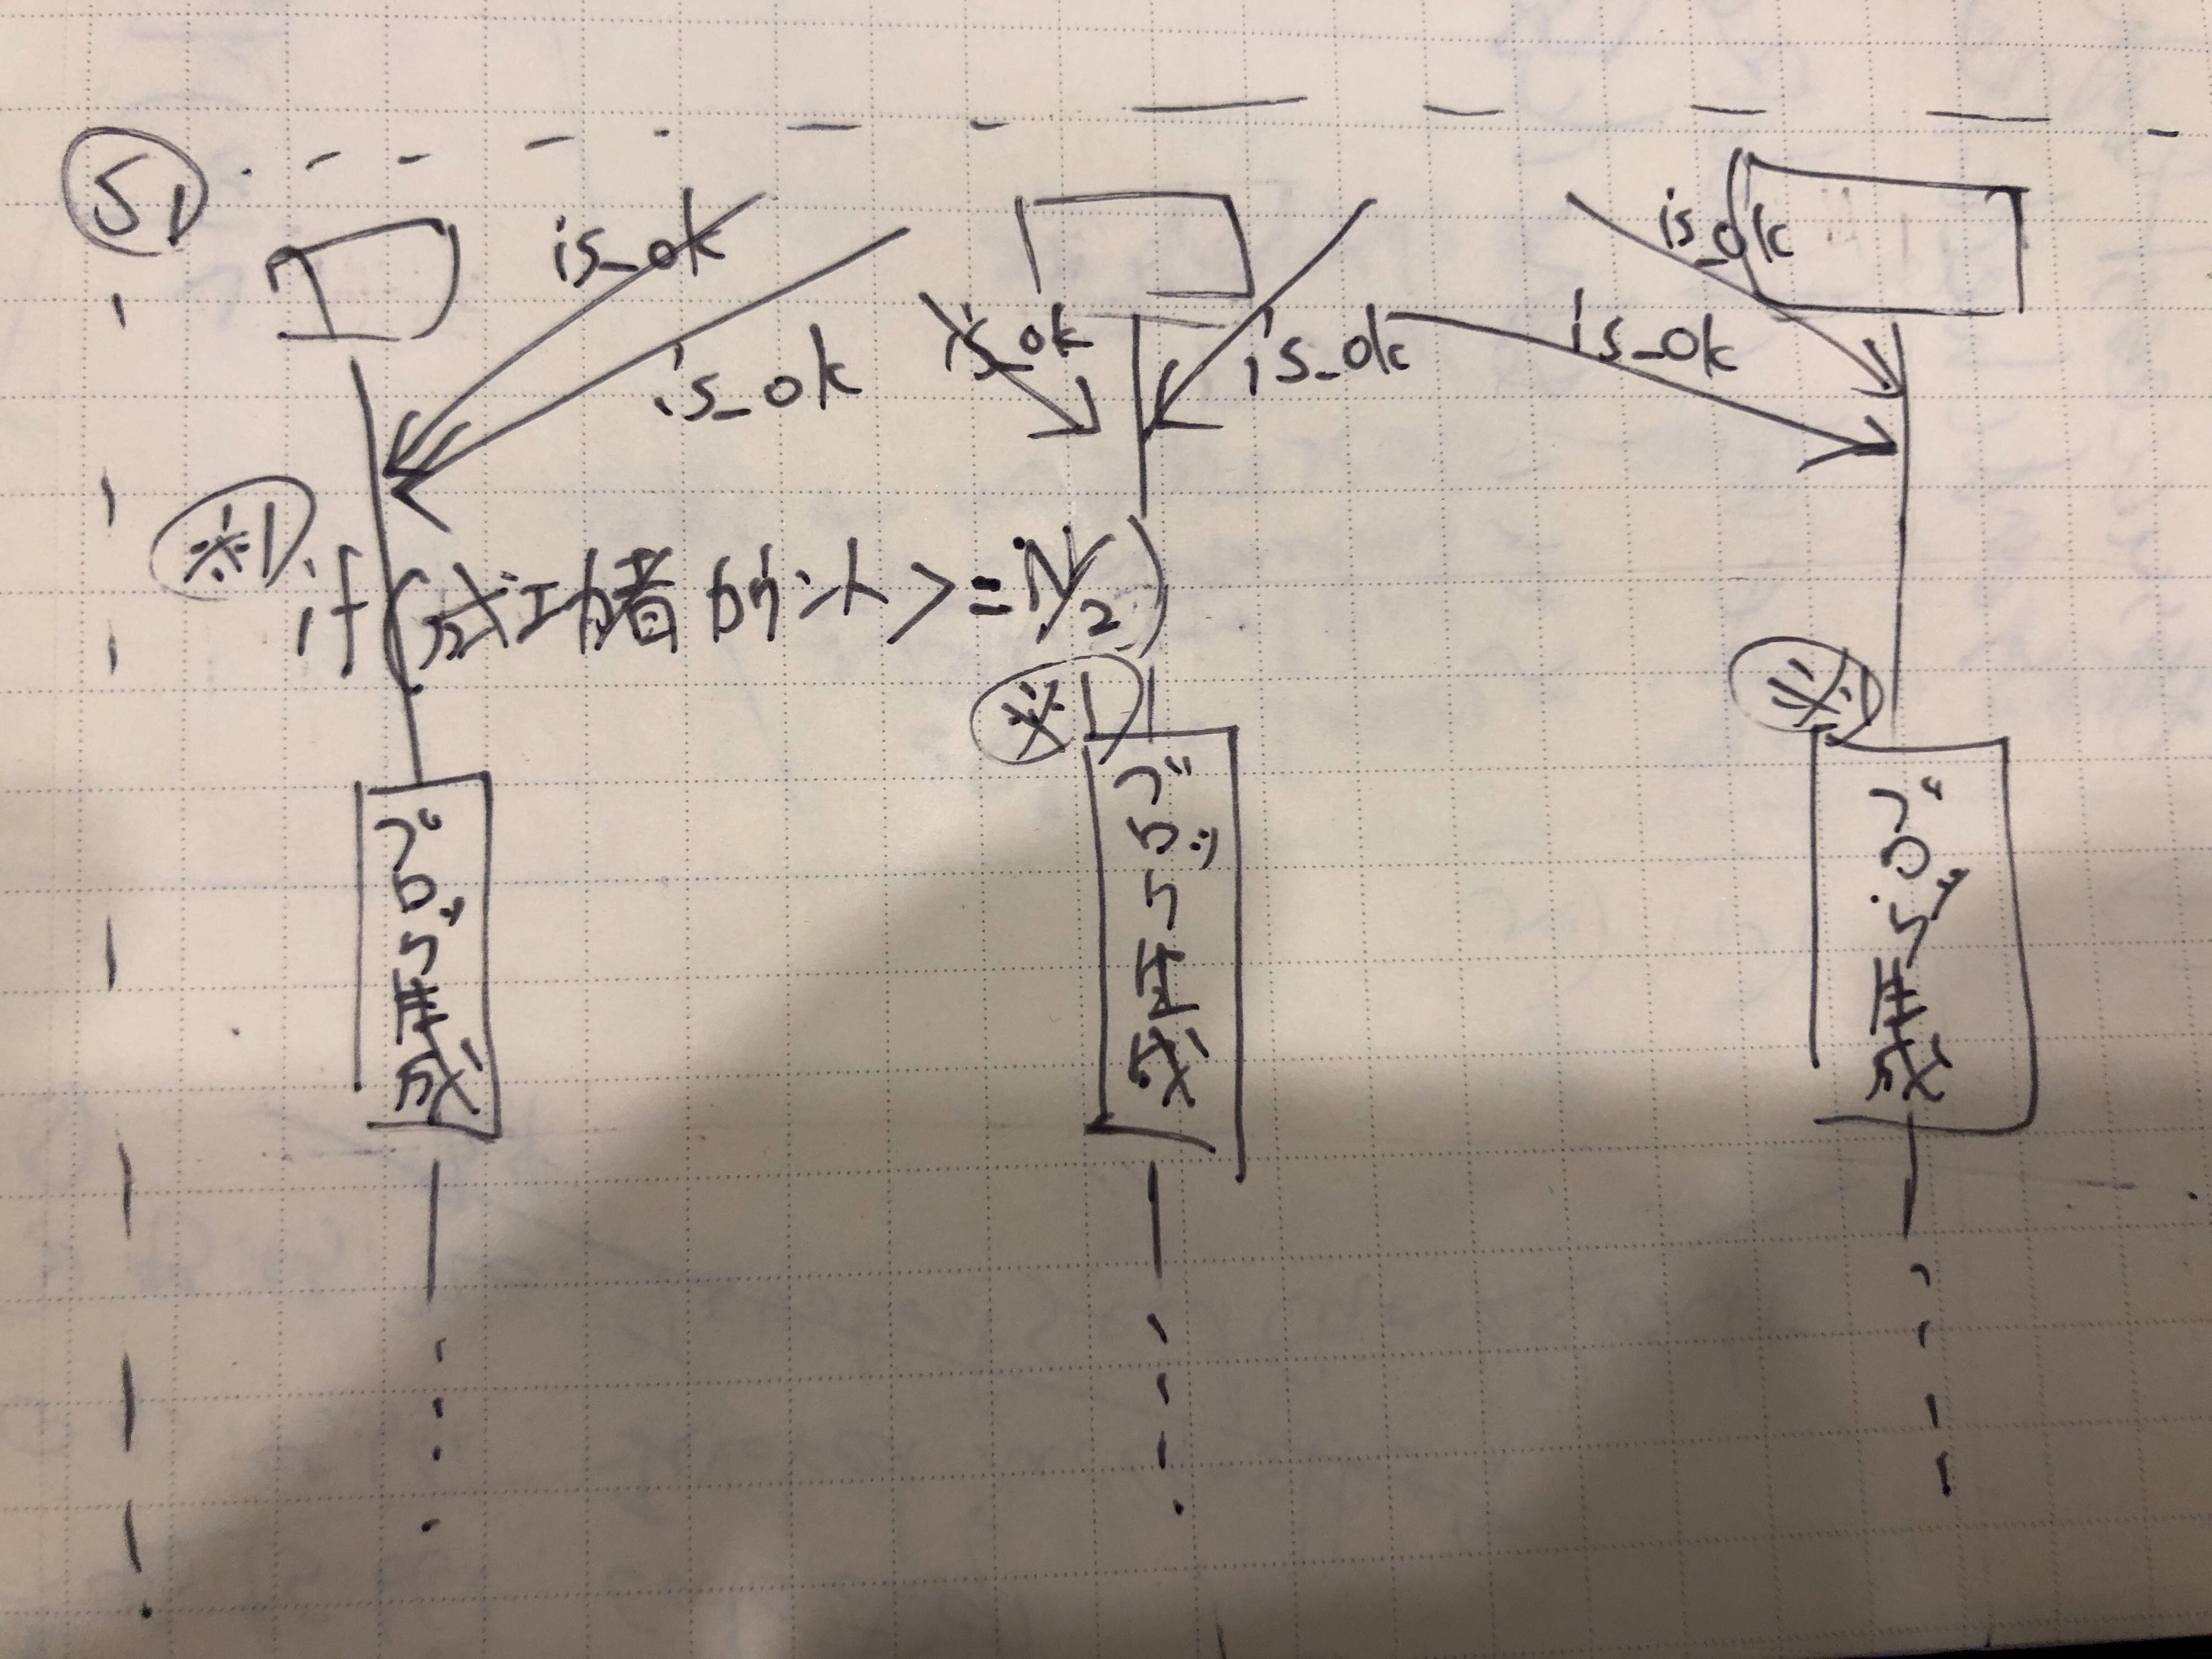 S1
is_ok
is_ok
is_ok
is_ok
is_ok
is_ok
※1
if(成功者カウント >= N/2)
※1
※1
ブロック生成
ブロック生成
ブロック生成